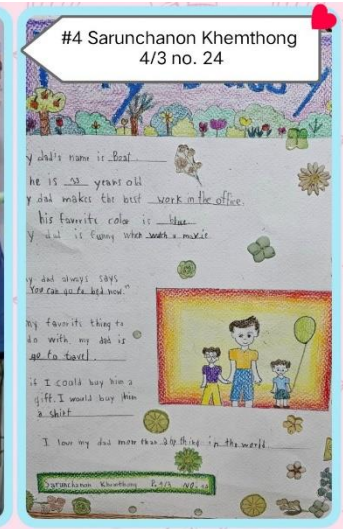 #4 Sarunchanon Khemthong
4/3 no. 24
My Daddy
y dad's name is Boat
he is years old
y dad makes the best work in the office.
his favorite color is blue
y dad is funny when watch a movie
y dad always says
You can go to bed now."
my favorite thing to
do with my dad is
go to travel.
if I could buy him a
gift. I would buy him
a shirt
I love my dad more than any thing in the world.
Sarunchanon Khemthong P.4/3 NO. 24